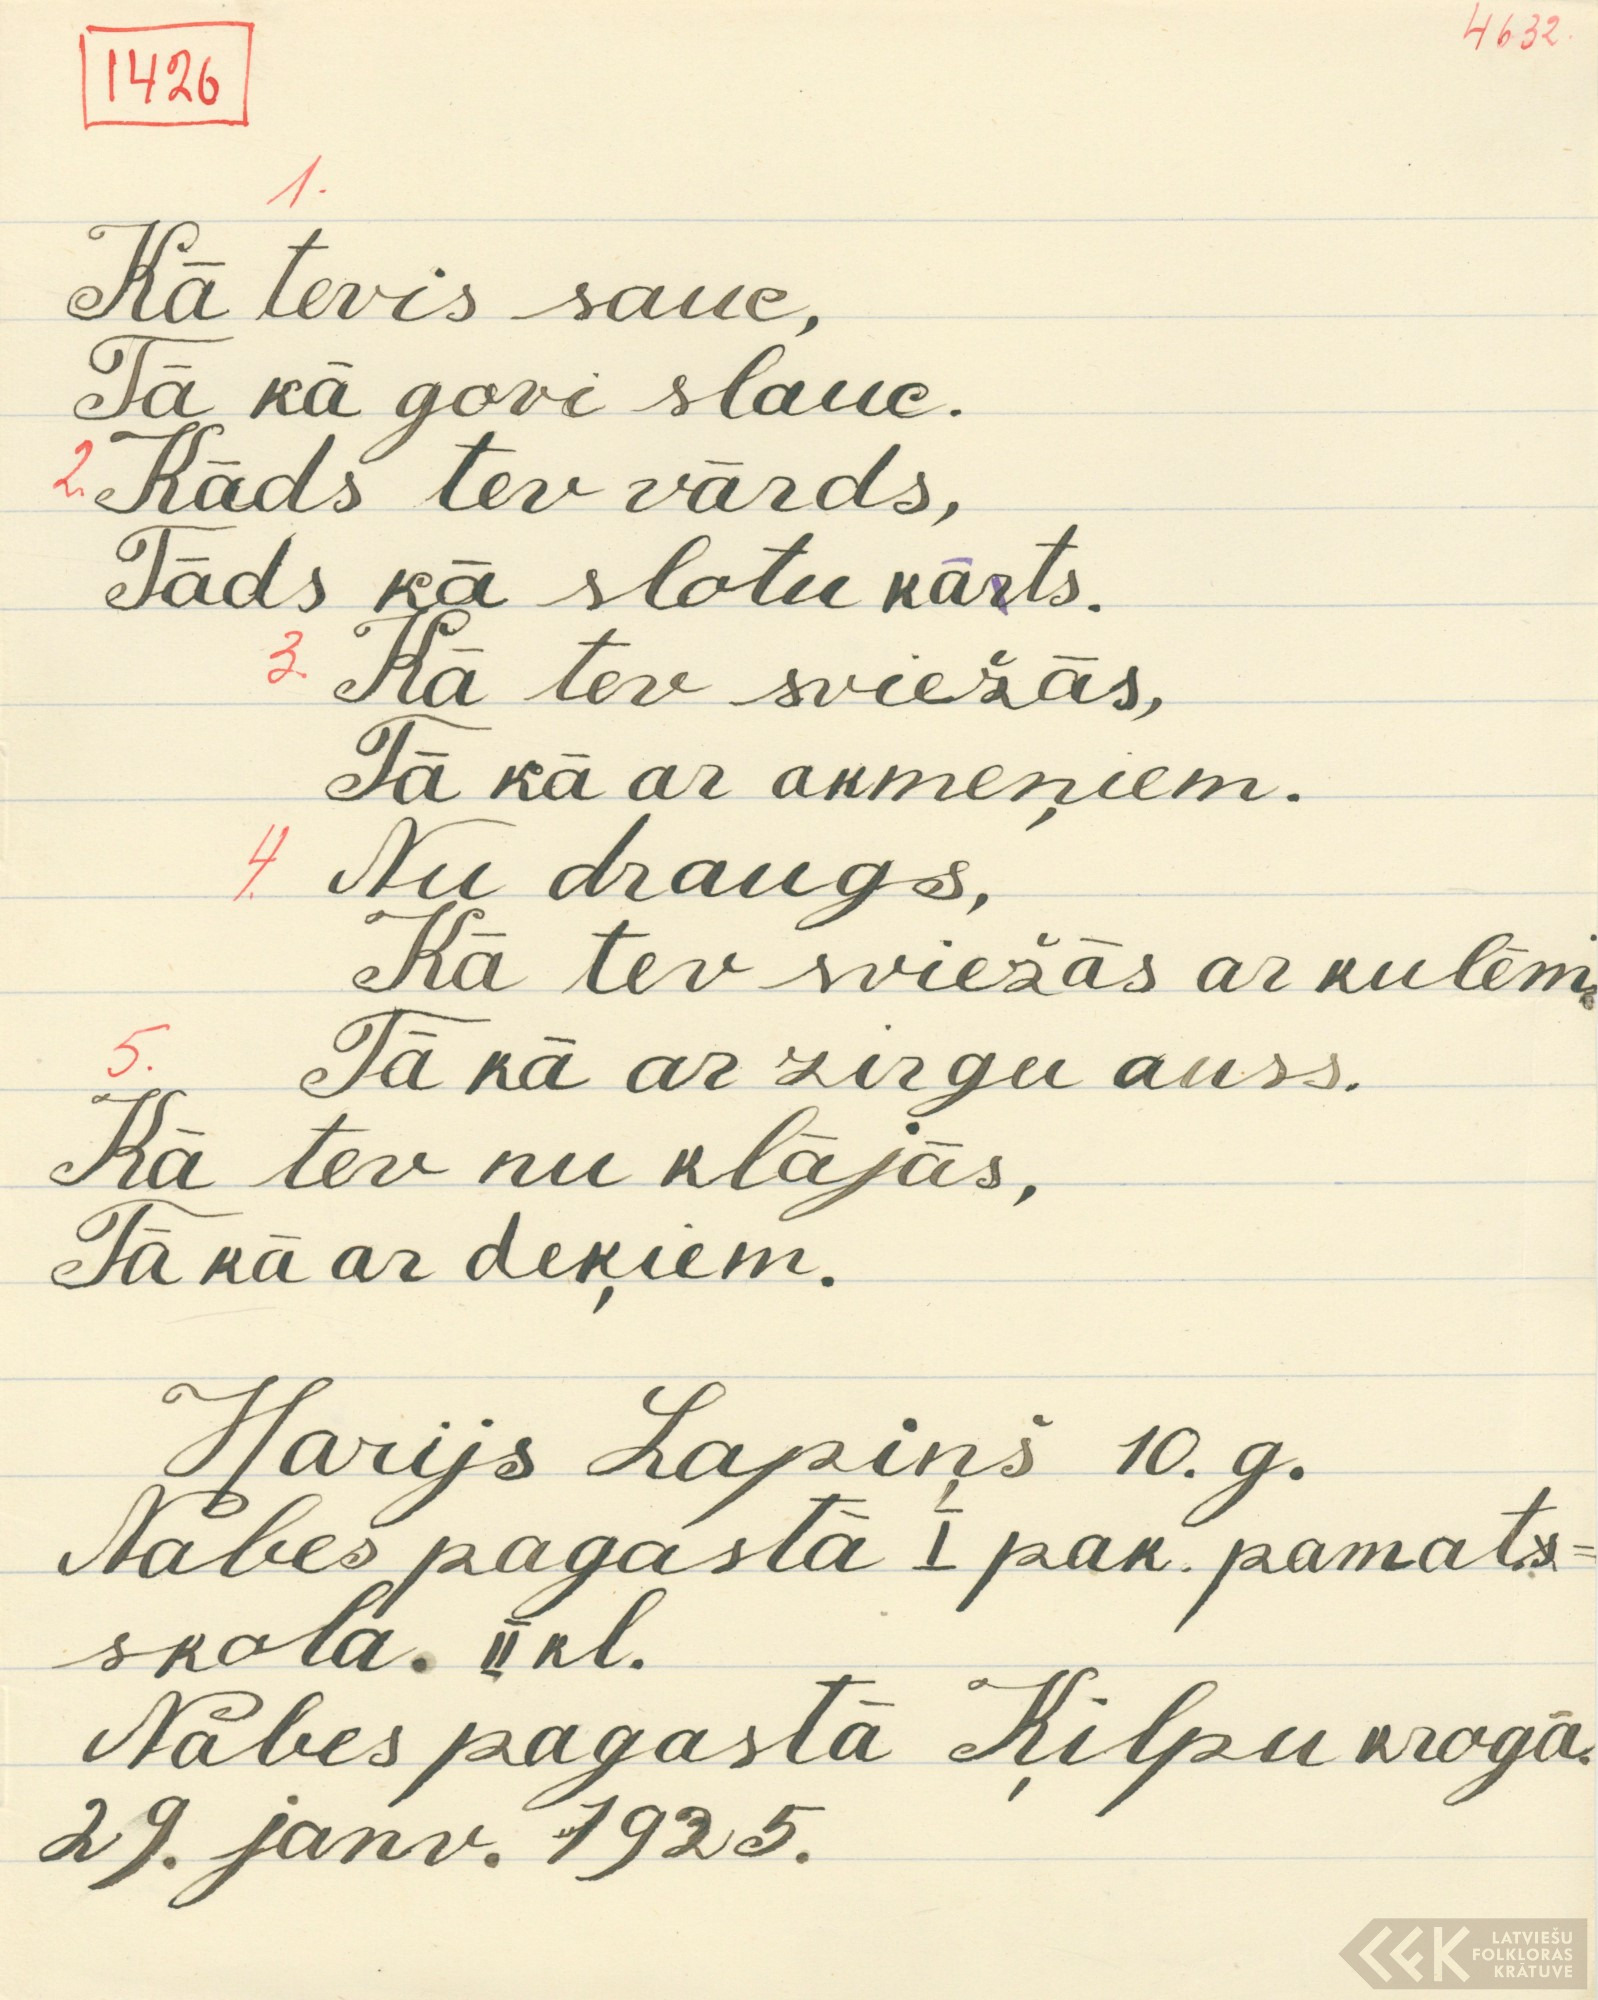 1426
4632.
1.
Kā tevis sauc,
Tā kā govi slauc.
2. Kāds tev vārds,
Tāds kā slotu kārts.
3. Kā tev sviežās,
Tā kā ar akmeņiem.
4. Nu draugs,
Kā tev sviežās ar kulēm
Tā kā ar zirgu auss.
5.
Kā tev nu klājās,
Tā kā ar deķiem.
Harijs Lapiņš 10. g.
Nabes pagastā I pak. pamats=
skola. II kl.
Nabes pagastā Ķilpu krogā.
29. janv. 1925.
LATVIEŠU
FOLKLORAS
KRĀTUVE